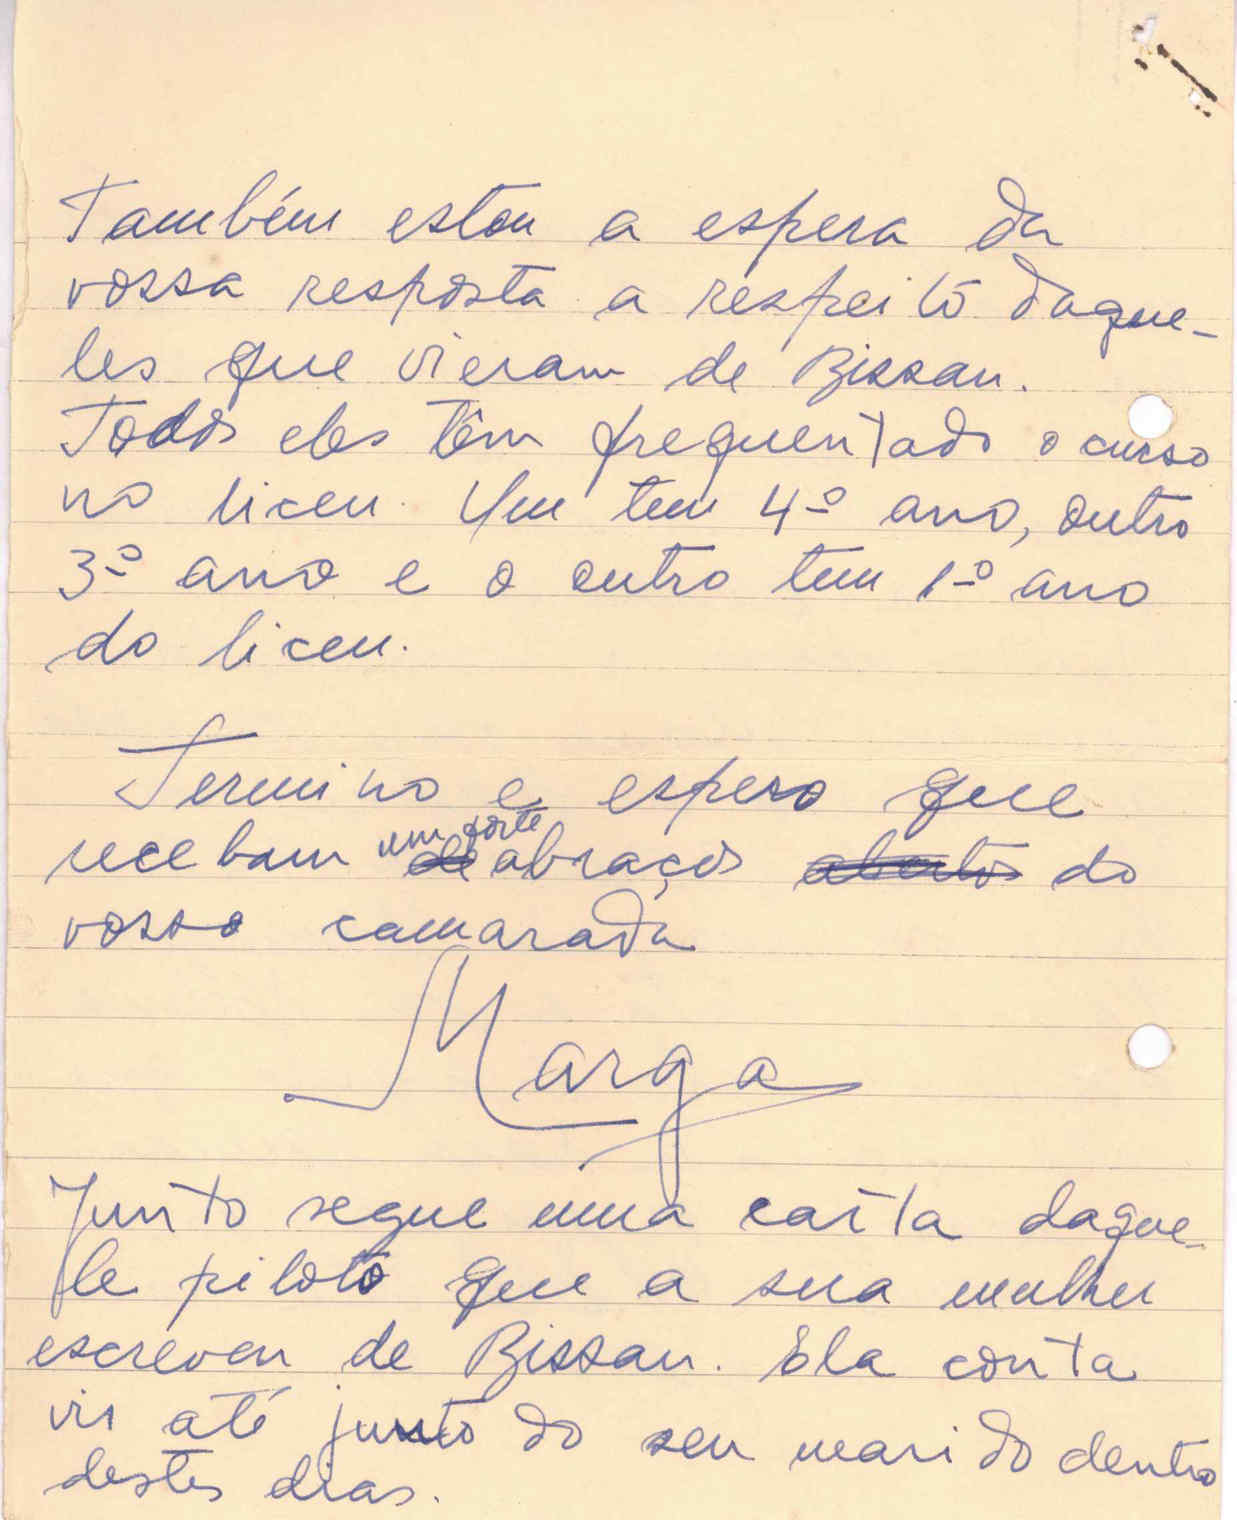 Também estou a espera da
vossa resposta a respeito daque-
les que vieram de Bissau.
Todos eles têm frequentado o curso
no liceu. Um tem 4º ano, outro
3º ano e o outro tem 1º ano
do liceu.
Termino e espero que
recebam um forte abraços do
vosso camarada
Marga
Junto segue uma carta daque-
le piloto que a sua mulher
escreveu de Bissau. Ela conta
vir até junto do seu marido dentro
destes dias.